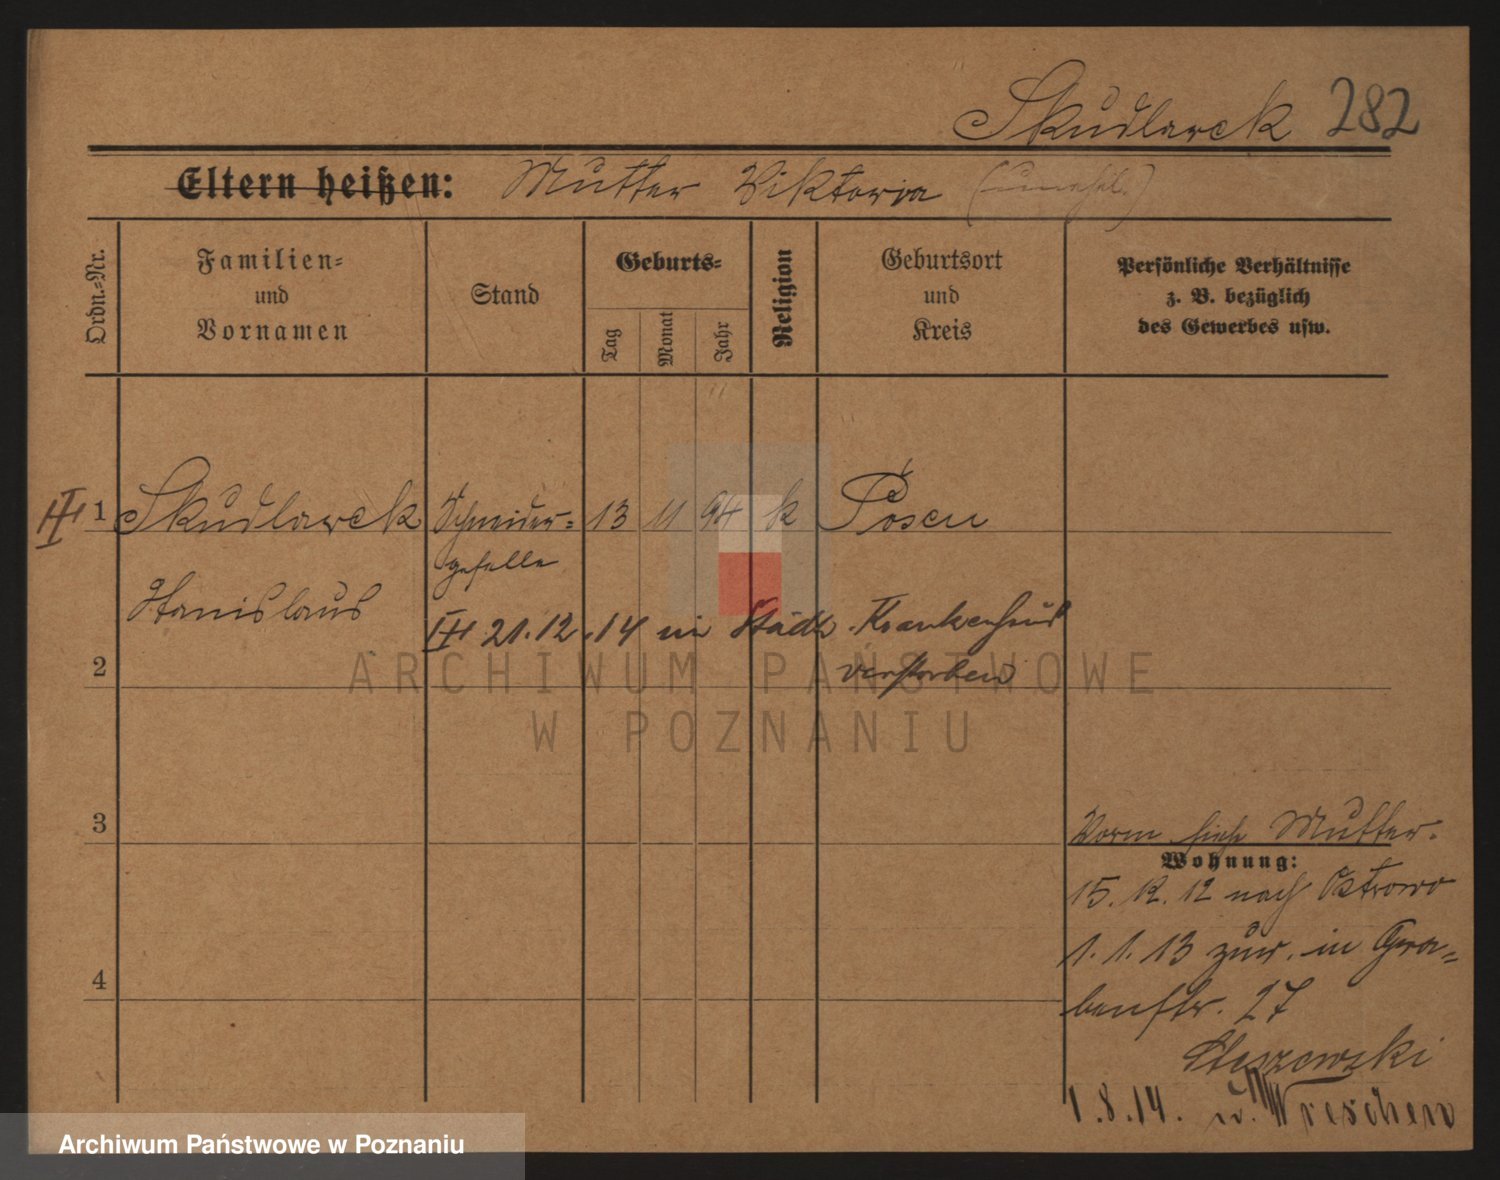 Skudlarek 282
Eltern heißen: Mutter Viktoria
Ordn.-Nr.
Familien-
und
Vornamen
Stand
Geburts-
Tag
Monat
Jahr
Religion
Geburtsort
und
Kreis
Persönliche Verhältnisse
z. B. bezüglich
des Gewerbes usw.
III 1 Skudlarek Schneider- 13 11 94 k Posen
geselle
Stanislaus
III 21.12.14 im Städt. Krankenhaus
verstorben
2
3
4
Vorm siehe Mutter.
Wohnung:
15. 12. 12 nach Ostrowo
1. 1. 13 zur. in Gra-
benstr. 27
1.8.14. n. Wreschen
ARCHIWUM PAŃSTWOWE
W POZNANIU
Archiwum Państwowe w Poznaniu